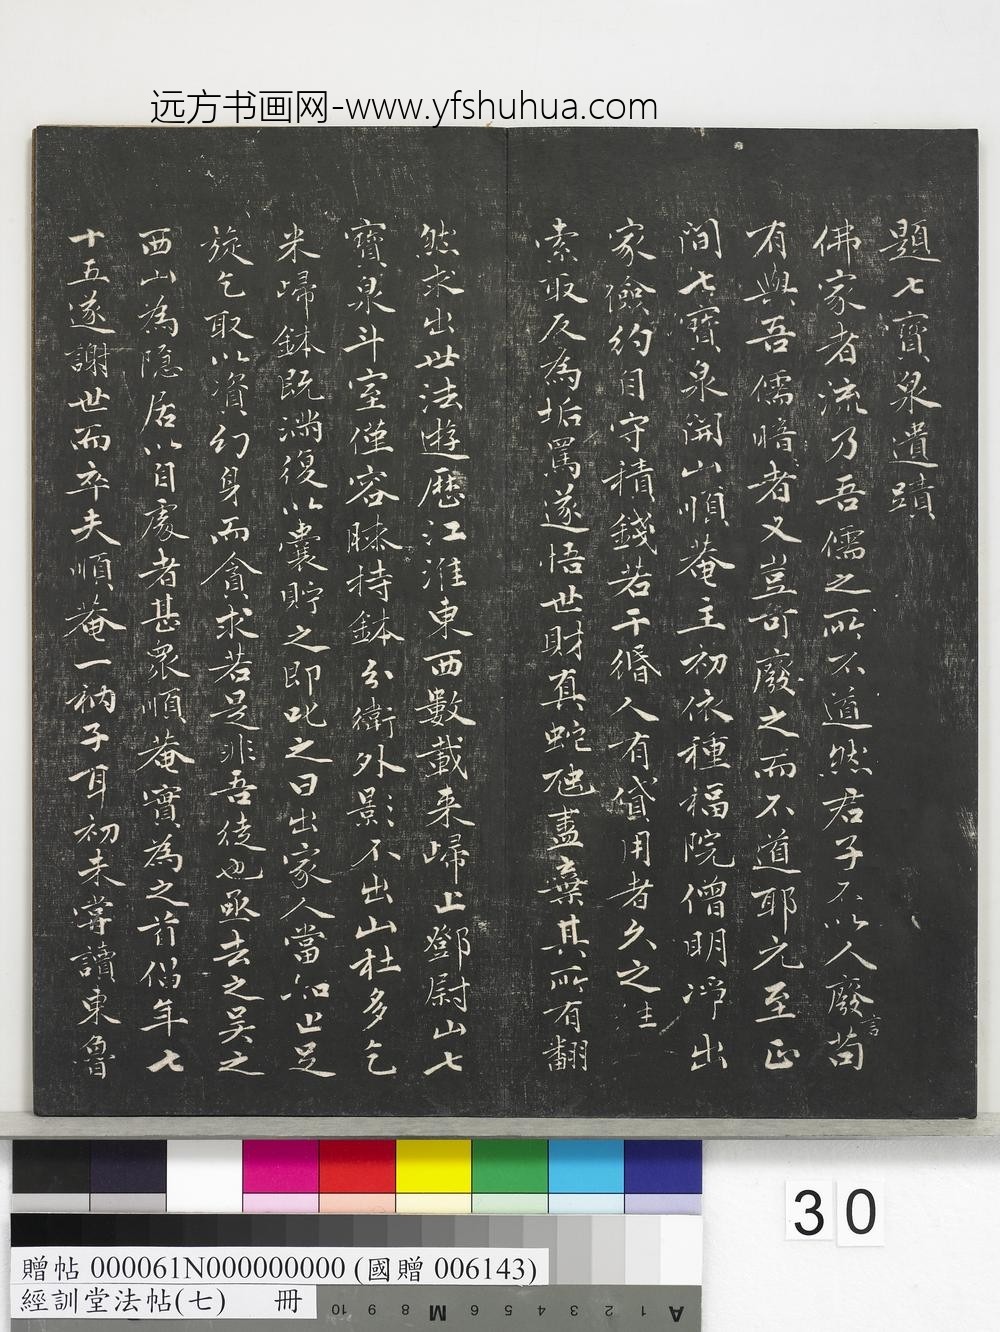 远方书画网-www.yfshuhua.com
題七寶泉遺蹟
佛家者流乃吾儒之所不道然君子不以人廢言苟
有與吾儒暗者又豈可廢之而不道耶元至正
間七寶泉開山順菴主初依種福院僧明淨出
家儉約自守積錢若干緡人有貸用者久之往
索取反為垢罵遂悟世財真蛇虺盡棄其所有翻
然求出世法遊歷江淮東西數載来歸上鄧尉山七
寶泉斗室僅容膝持鉢分衛外影不出山杜多乞
米歸鉢既満復以囊貯之即叱之曰出家人當知止足
旋乞取以資幻身而貪求若是非吾徒也亟去之吴之
西山為隐居以自處者甚眾順菴實為之首倡年七
十五遂謝世而卒夫順菴一衲子耳初未嘗讀東魯
30
贈帖 000061N000000000 (國贈 006143)
經訓堂法帖(七) 冊
10 9 8 M 6 5 4 3 2 1 A